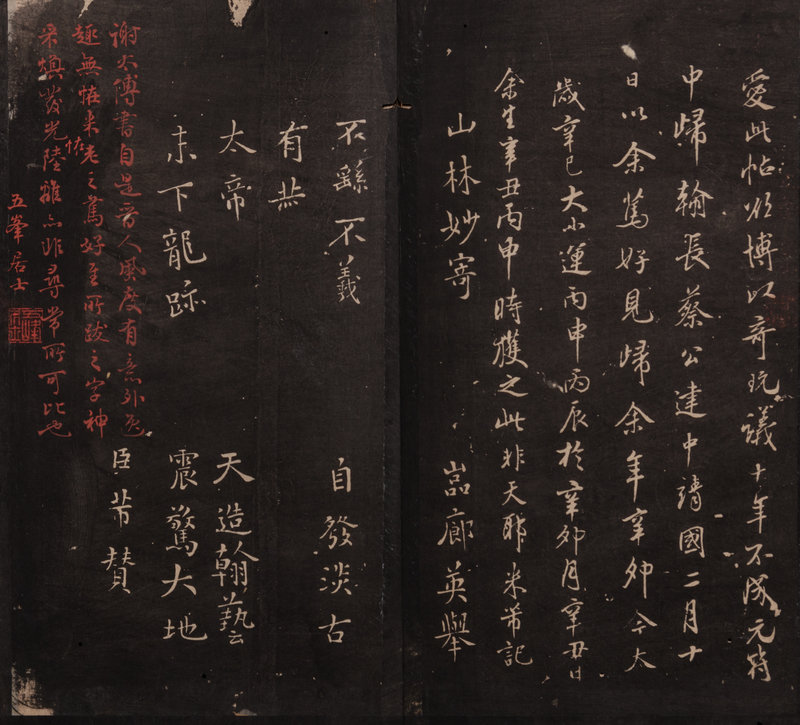 愛此帖欲博以奇玩議十年不成元符
中歸翰長蔡公建中靖國二月十
日以余篤好見歸余年辛卯今太
歲辛巳大小運丙申丙辰於辛卯月辛丑日
余生辛丑丙申時獲之此非天耶米芾記
山林妙寄 巖廊英舉
不繇不羲 自發淡古
有恭
太帝 天造翰藝
末下龍跡 震驚大地
臣芾贊
謝太傅書自是晉人風度有意外逸
趣無怪米老之篤好至所跋之字神
采煥發光陸離亦非尋常所可比也
怪
五峯居士